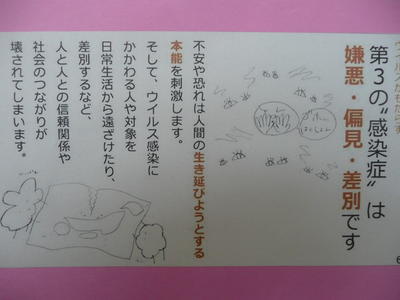 第3の“感染症”は
嫌悪・偏見・差別です
不安や恐れは人間の生き延びようとする
本能を刺激します。
そして、ウイルス感染に
かかわる人や対象を
日常生活から遠ざけたり、
差別するなど、
人と人との信頼関係や
社会のつながりが
壊されてしまいます。